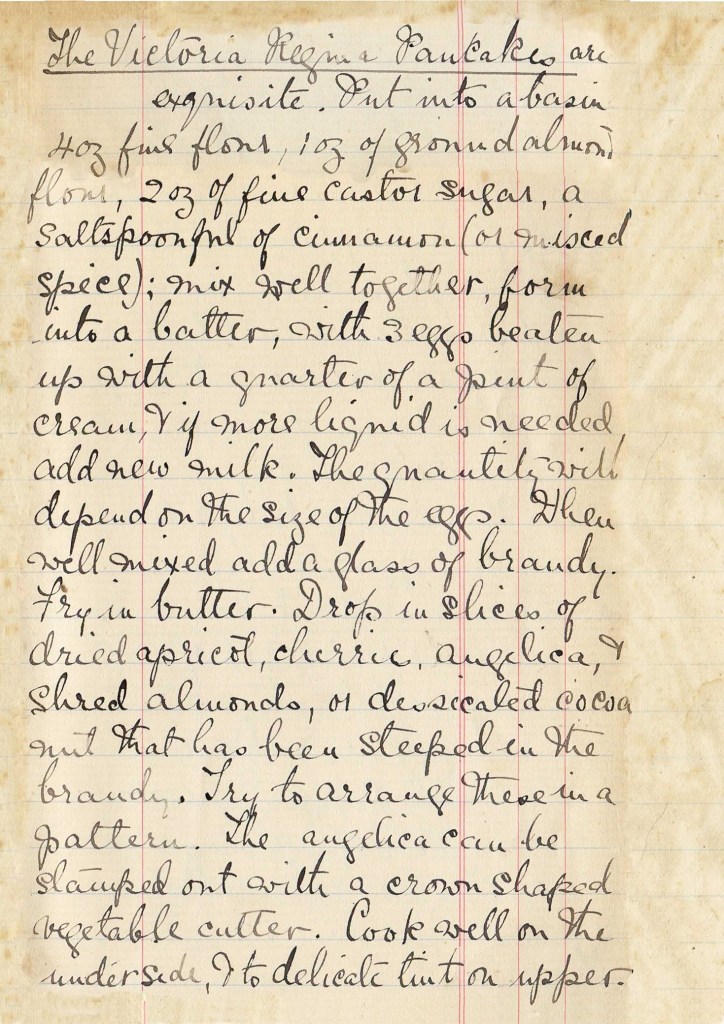 The Victoria Regina Pancakes are
exquisite. Put into a basin
4oz fine flour, 1oz of ground almond
flour, 2oz of fine castor sugar, a
saltspoonful of cinnamon (or misced
spice); mix well together, form
into a batter, with 3 eggs beaten
up with a quarter of a pint of
cream, & if more liquid is needed,
add new milk. The quantity will
depend on the size of the eggs. When
well mixed add a glass of brandy.
Fry in butter. Drop in slices of
dried apricot, cherrie, angelica, &
shred almonds, or dessicated cocoa
nut that has been steeped in the
brandy. Try to arrange these in a
pattern. The angelica can be
stamped out with a crown shaped
vegetable cutter. Cook well on the
underside, & to delicate tint on upper.